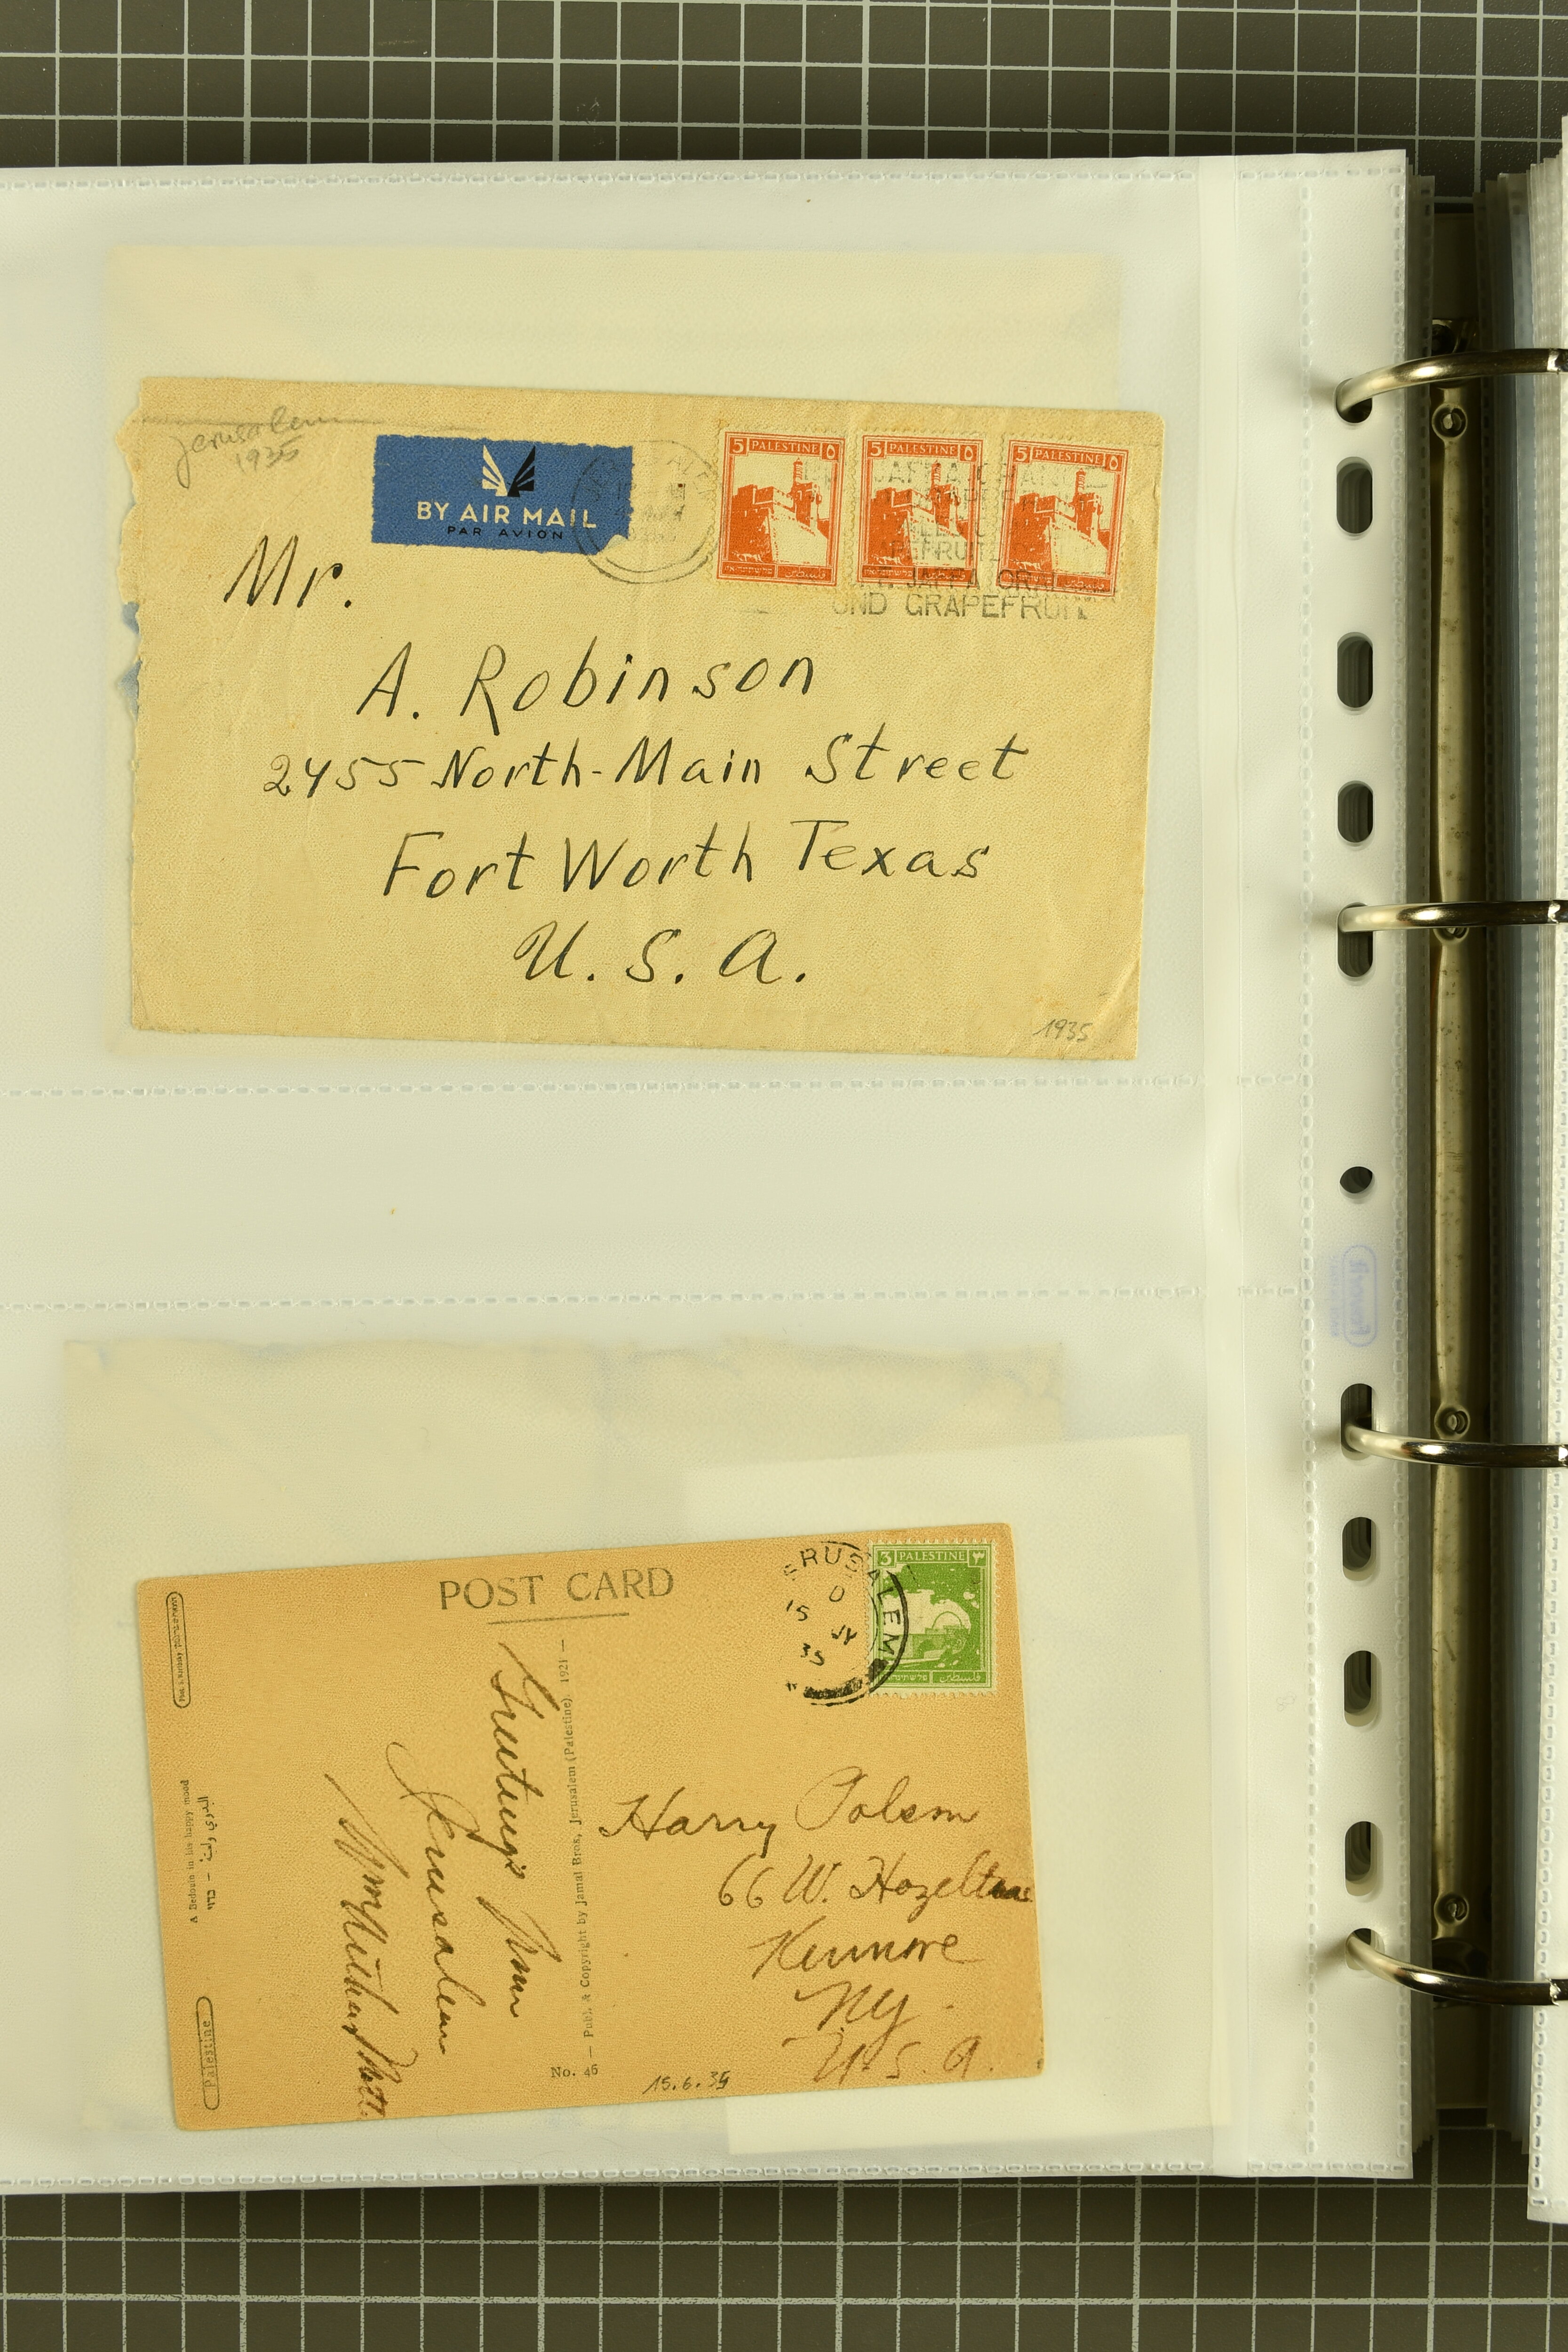 Jerusalem
1935
BY AIR MAIL
PAR AVION
5 PALESTINE ٥
5 PALESTINE ٥
5 PALESTINE ٥
JAFFA ORAN
UND GRAPEFRUIT
Mr.
A. Robinson
2455 North-Main Street
Fort Worth Texas
U. S. A.
1935
POST CARD
3 PALESTINE ٣
فلسطين
ERUSALEM
15 JY
35
Greetings from
Jerusalem
A Bedouin in his happy mood
Palestine
No. 46 — Publ. & Copyright by Jamal Bros, Jerusalem (Palestine) 1921 —
Harry
66 W.
Kenmore
NY.
U. S. A.
15.6.35